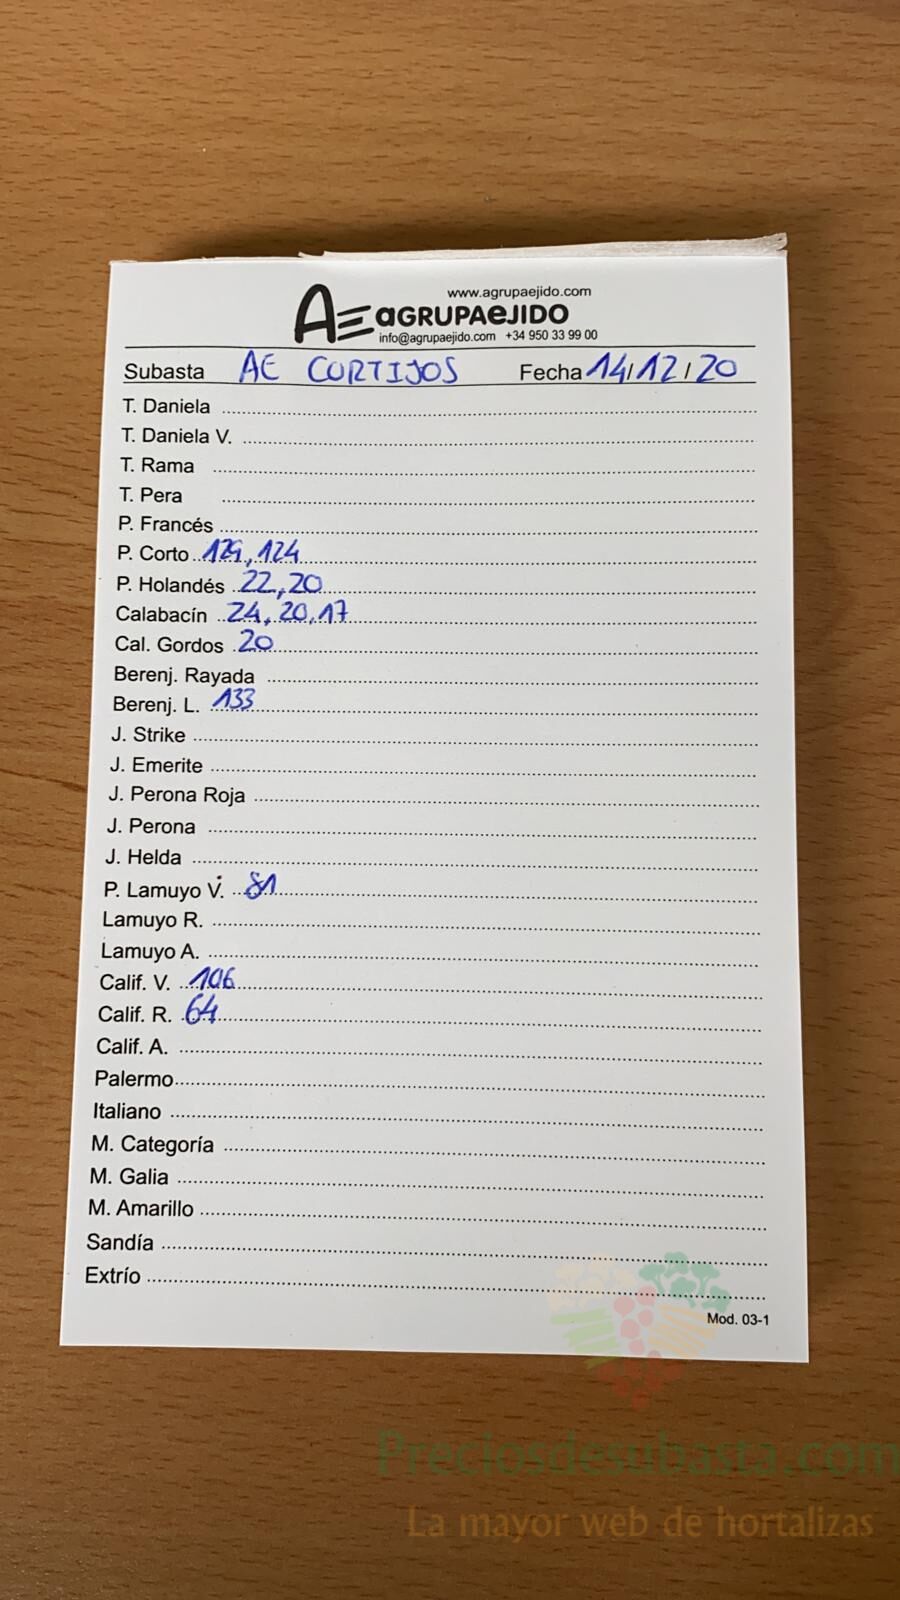 www.agrupaejido.com
AE AGRUPAEJIDO
info@agrupaejido.com +34 950 33 99 00
Subasta AE CORTIJOS Fecha 14/12/20
T. Daniela
T. Daniela V.
T. Rama
T. Pera
P. Francés
P. Corto 129, 124
P. Holandés 22, 20
Calabacín 24, 20, 17
Cal. Gordos 20
Berenj. Rayada
Berenj. L. 133
J. Strike
J. Emerite
J. Perona Roja
J. Perona
J. Helda
P. Lamuyo V. 81
Lamuyo R.
Lamuyo A.
Calif. V. 106
Calif. R. 64
Calif. A.
Palermo
Italiano
M. Categoría
M. Galia
M. Amarillo
Sandía
Extrío
Mod. 03-1
Preciosdesubasta.com
La mayor web de hortalizas